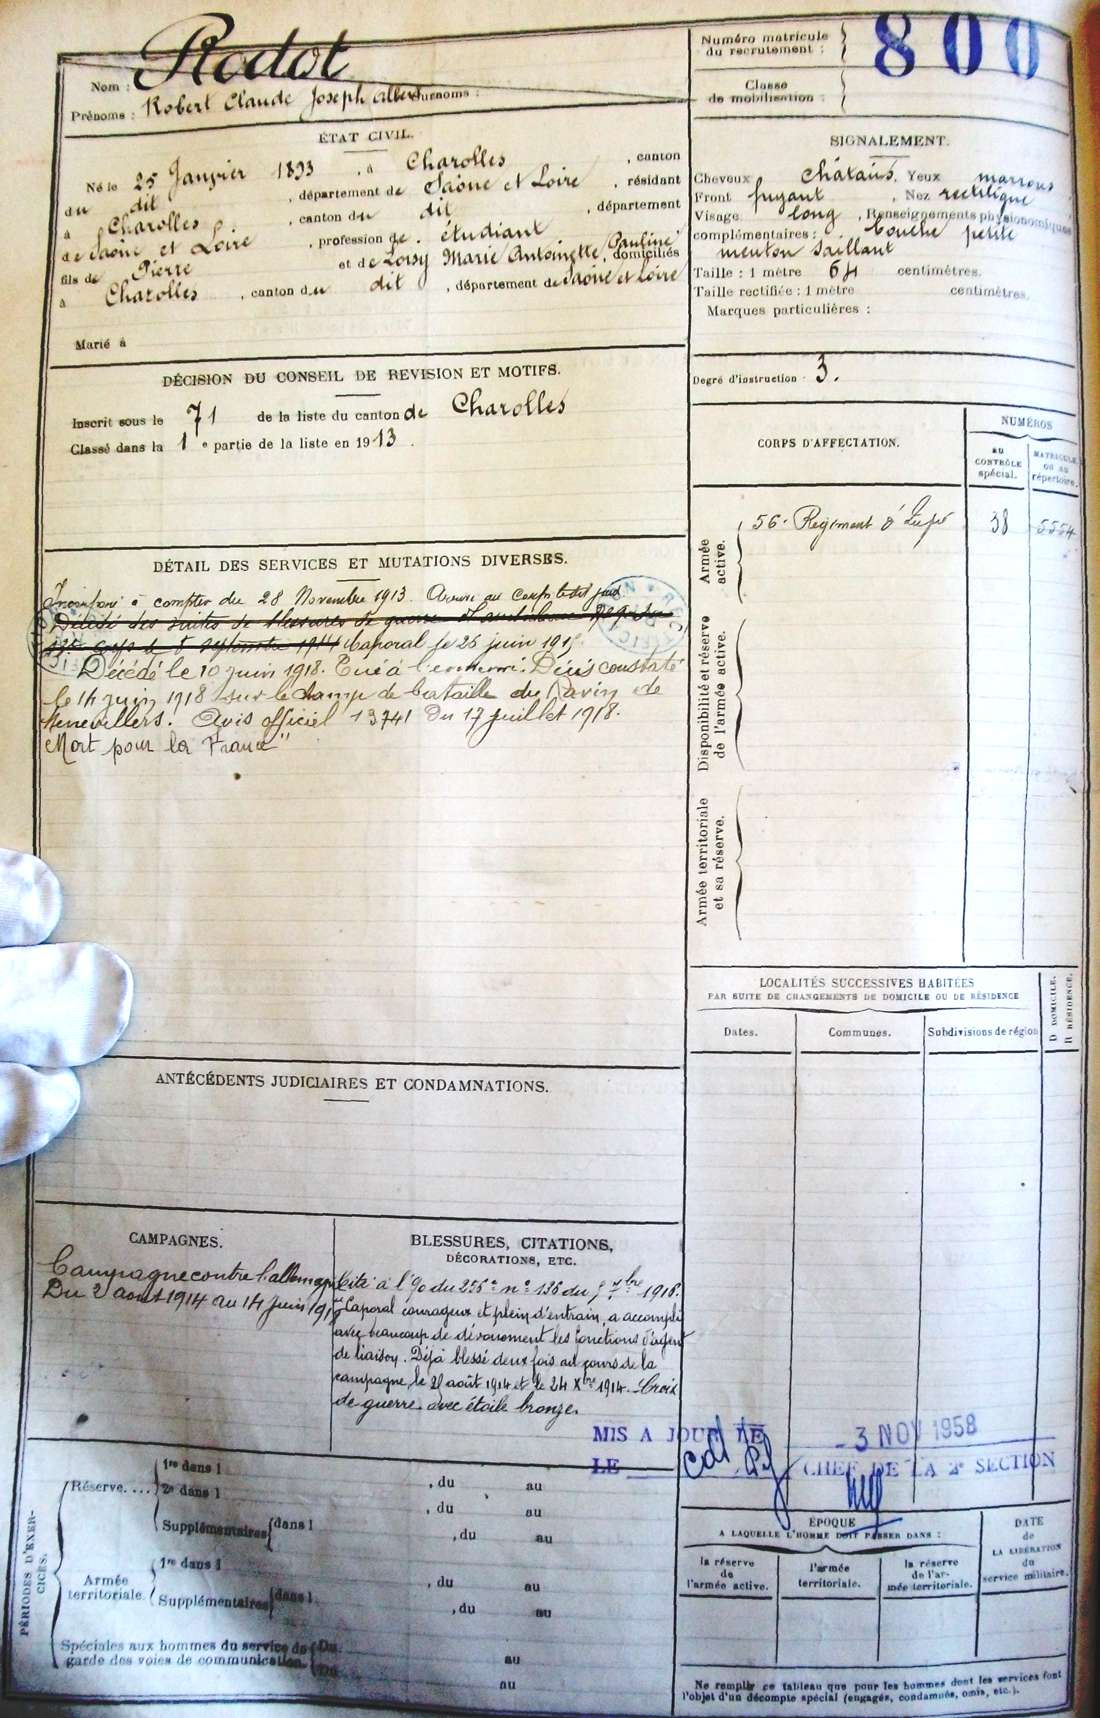 Nom : Rodot
Prénoms : Robert Claude Joseph Albert Surnoms :
Numéro matricule du recrutement : 800
Classe de mobilisation :
ÉTAT CIVIL.
Né le 25 Janvier 1893, à Charolles, canton
du dit, département de Saône et Loire, résidant
à Charolles, canton du dit, département
de Saône et Loire, profession de étudiant
fils de Pierre et de Loisy Marie Antoinette, Pauline domiciliés
à Charolles, canton du dit, département de Saône et Loire
Marié à
SIGNALEMENT.
Cheveux châtains, Yeux marrons
Front fuyant, Nez rectiligne
Visage long, Renseignements physionomiques
complémentaires : bouche petite
menton saillant
Taille : 1 mètre 64 centimètres.
Taille rectifiée : 1 mètre centimètres.
Marques particulières :
Degré d'instruction 3.
DÉCISION DU CONSEIL DE REVISION ET MOTIFS.
Inscrit sous le 71 de la liste du canton de Charolles
Classé dans la 1e partie de la liste en 1913.
CORPS D'AFFECTATION.
NUMÉROS
au CONTRÔLE spécial.
MATRICULE ou au répertoire.
Armée active.
56e Regiment d' 38 5554
Disponibilité et réserve de l'armée active.
Armée territoriale et sa réserve.
DÉTAIL DES SERVICES ET MUTATIONS DIVERSES.
Incorporé à compter du 28 Novembre 1913. Arrivé au corps le dit jour
Décédé des suites de blessures de guerre
corps le 8 septembre 1914 Caporal le 25 juin 1915
Décédé le 10 juin 1918. Tué à l'ennemi. Décès constaté
le 14 juin 1918 sur le champ de bataille du Ravin de
Menevillers. Avis officiel 13741 Du 17 juillet 1918.
Mort pour la France"
LOCALITÉS SUCCESSIVES HABITÉES
PAR SUITE DE CHANGEMENTS DE DOMICILE OU DE RÉSIDENCE
Dates. Communes. Subdivisions de région
D DOMICILE.
R RÉSIDENCE.
ANTÉCÉDENTS JUDICIAIRES ET CONDAMNATIONS.
CAMPAGNES.
Campagne contre l'allemagne
Du 2 aout 1914 au 14 juin 191
BLESSURES, CITATIONS,
DÉCORATIONS, ETC.
Cité à l'O du 256e n° 136 du 7bre 1916.
"Caporal courageux et plein d'entrain, a accompli
avec beaucoup de dévouement les fonctions d'agent
de liaison. Déjà blessé deux fois au cours de la
campagne le août 1914 et le 24 Xbre 1914. Croix
de guerre avec étoile bronze.
MIS A JOUR LE 3 NOV 1958
LE CHEF DE LA 2e SECTION
PÉRIODES D'EXERCICES.
Réserve....
1re dans l , du au
2e dans l , du au
Supplémentaires dans l , du au
Armée territoriale.
1re dans l , du au
Supplémentaires dans l , du au
Spéciales aux hommes du service de garde des voies de communication.
Du au
Du au
ÉPOQUE
A LAQUELLE L'HOMME DOIT PASSER DANS :
la réserve de l'armée active.
l'armée territoriale.
la réserve de l'armée territoriale.
DATE de LA LIBÉRATION du service militaire.
Ne remplir ce tableau que pour les hommes dont les services font
l'objet d'un décompte spécial (engagés, condamnés, omis, etc.).